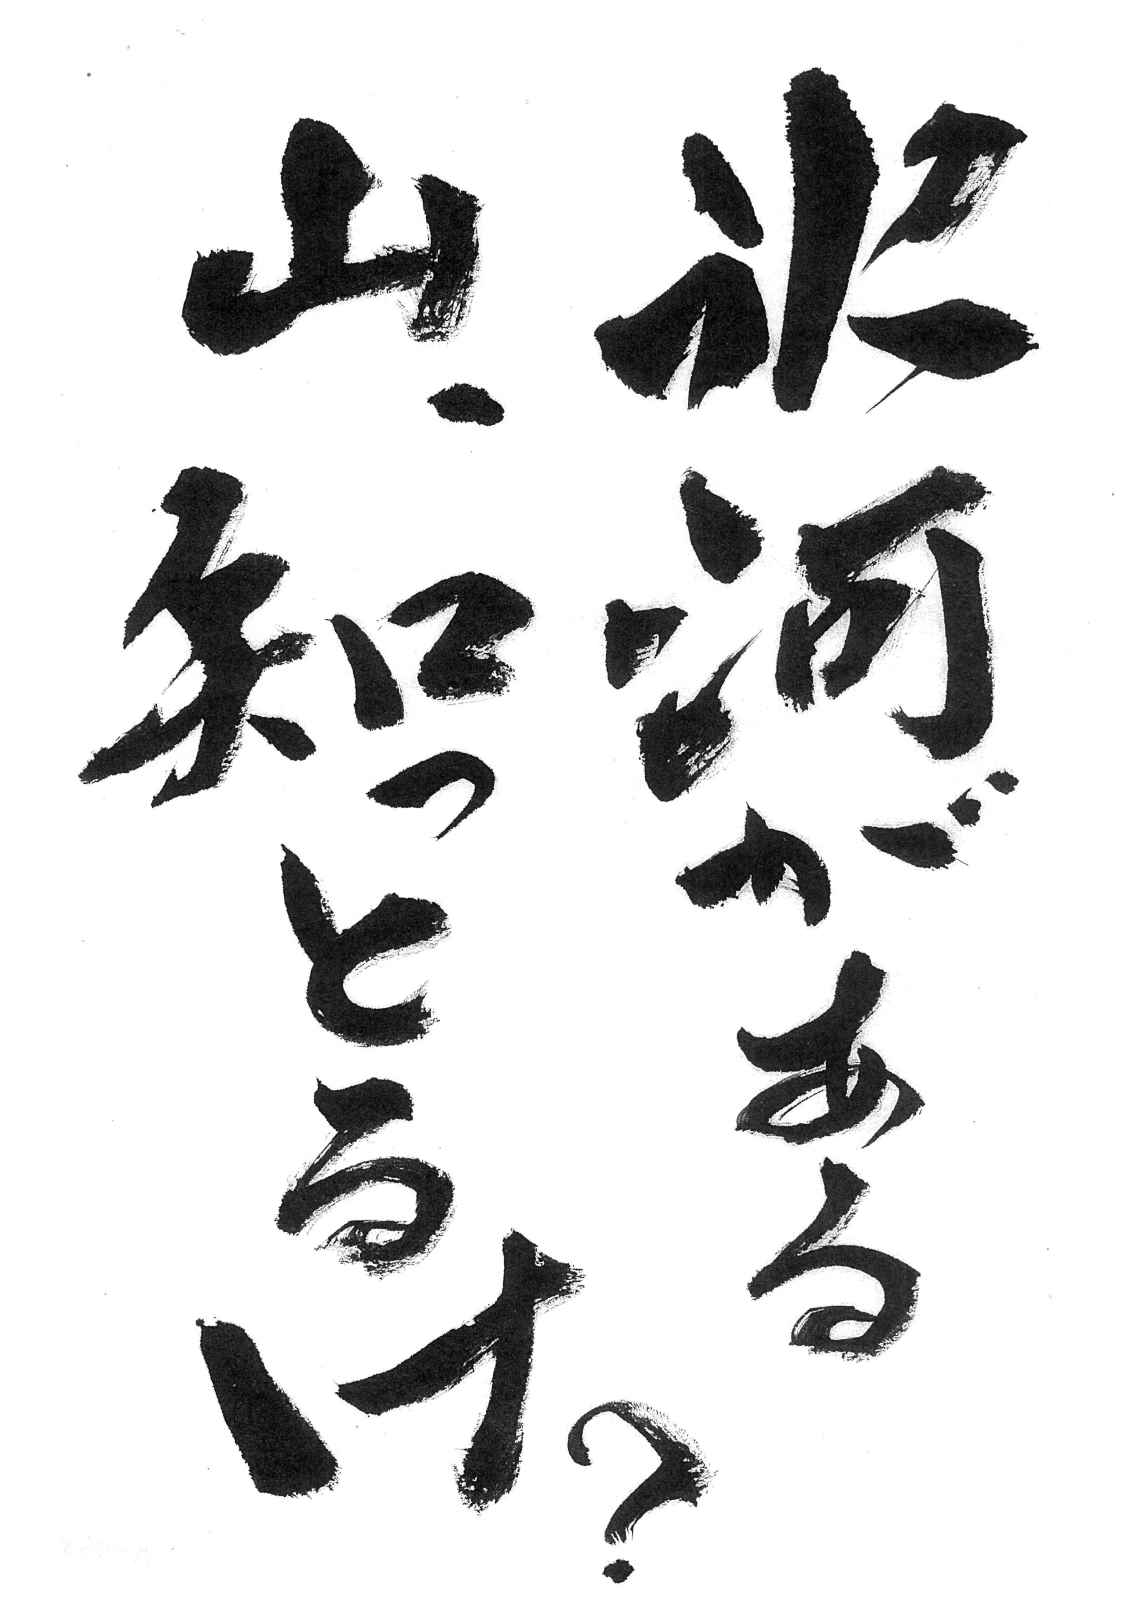 氷河がある
山、知っとるけ?